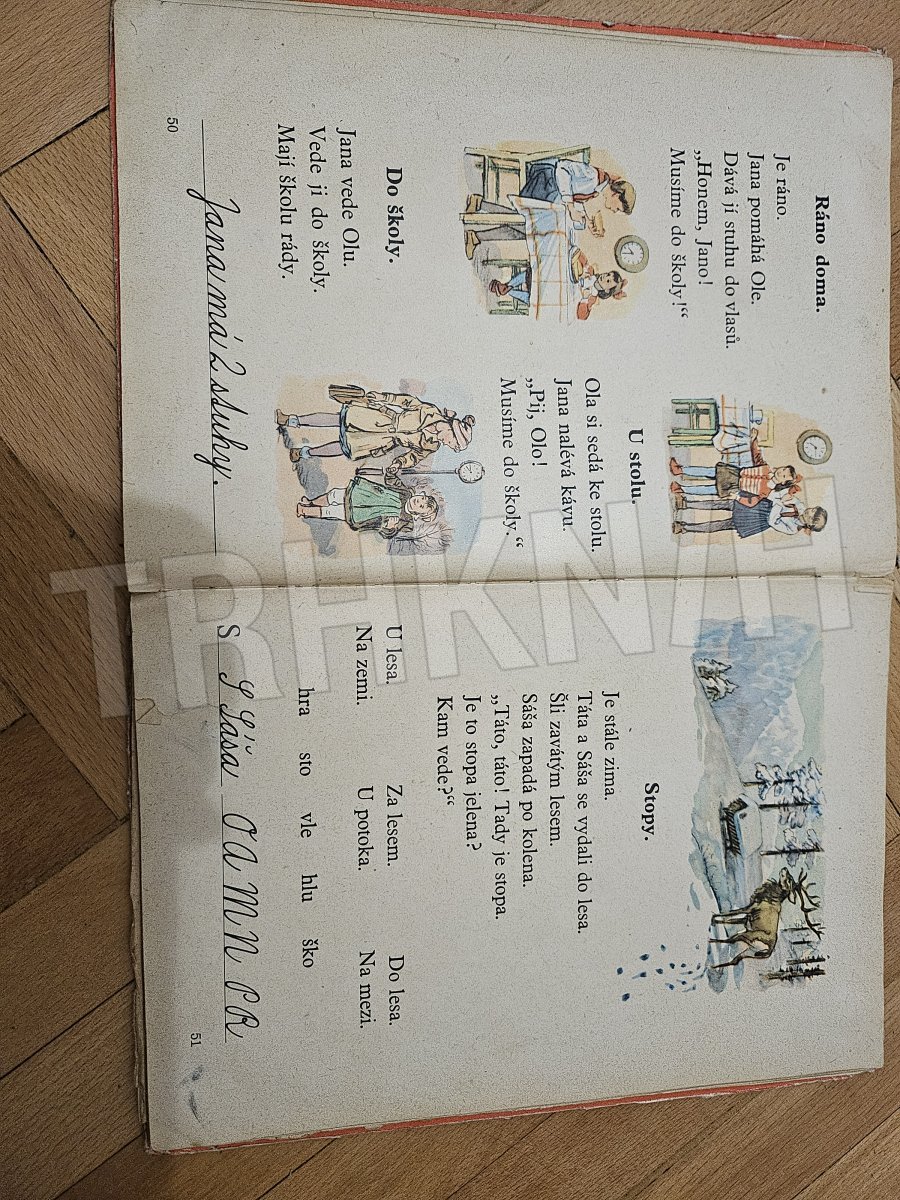 Ráno doma.
Je ráno.
Jana pomáhá Ole.
Dává jí stuhu do vlasů.
„Honem, Jano!
Musíme do školy!“
U stolu.
Ola si sedá ke stolu.
Jana nalévá kávu.
„Pij, Olo!
Musíme do školy.“
Do školy.
Jana vede Olu.
Vede ji do školy.
Mají školu rády.
Jana má 2 stuhy.
50
Stopy.
Je stále zima.
Táta a Sáša se vydali do lesa.
Šli zavátým lesem.
Sáša zapadá po kolena.
„Táto, táto! Tady je stopa.
Je to stopa jelena?
Kam vede?“
U lesa. Za lesem. Do lesa.
Na zemi. U potoka. Na mezi.
hra sto vle hlu ško
S S Sáša O A M N P R
51
TRHKNIH